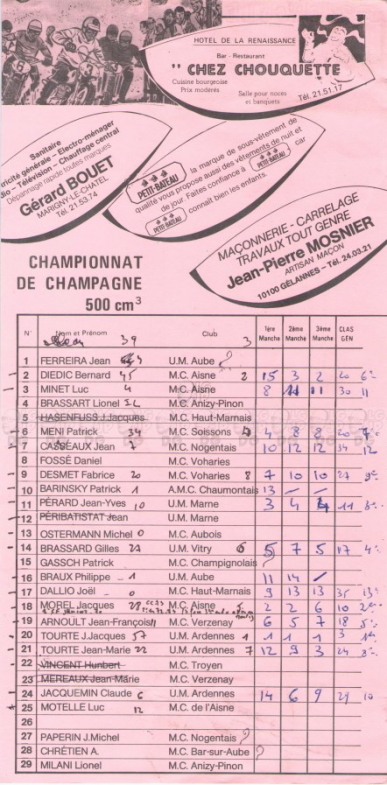 HOTEL DE LA RENAISSANCE
Bar - Restaurant
" CHEZ CHOUQUETTE
Cuisine bourgeoise
Prix modérés
Salle pour noces
et banquets
Tél. 21.51.17
Sanitaire
Électricité générale - Electro-ménager
Télévision - Chauffage central
Dépannage rapide toutes marques
Gérard BOUET
MARIGNY-LE-CHATEL
Tél. 21.53.74
PETIT-BATEAU la marque de sous-vêtement de
qualité vous propose aussi des vêtements de nuit et
de jour. Faites confiance à PETIT-BATEAU car
PETIT-BATEAU connaît bien les enfants.
MAÇONNERIE - CARRELAGE
TRAVAUX TOUT GENRE
Jean-Pierre MOSNIER
ARTISAN MAÇON
10100 GELANNES - Tél. 24.03.21
CHAMPIONNAT
DE CHAMPAGNE
500 cm3
N° Nom et Prénom 39 Club 3 1ère Manche 2ème Manche 3ème Manche CLAS GEN
1 FERREIRA Jean U.M. Aube
2 DIEDIC Bernard 45 M.C. Aisne 2 15 3 2 20 6
3 MINET Luc 4 M.C. Aisne 8 11 11 30 11
4 BRASSART Lionel M.C. Anizy-Pinon
5 HASENFUSS J.Jacques M.C. Haut-Marnais
6 MENI Patrick 34 M.C. Soissons 4 8 8 20
7 CASSEAUX Jean 7 M.C. Nogentais 10 12 12 34 12
8 FOSSÉ Daniel M.C. Voharies
9 DESMET Fabrice 20 M.C. Voharies 8 7 10 10 27 9
10 BARINSKY Patrick 1 A.M.C. Chaumontais 13
11 PÉRARD Jean-Yves 10 U.M. Marne 3 4 4 11
12 PÉRIBATISTAT Jean U.M. Marne
13 OSTERMANN Michel 0 M.C. Aubois
14 BRASSARD Gilles 22 U.M. Vitry 6 5 7 5 17 4
15 GASSCH Patrick M.C. Champignolais
16 BRAUX Philippe 1 U.M. Aube 11 14
17 DALLIO Joël 0 M.C. Haut-Marnais 9 13 13 35 13
18 MOREL Jacques M.C. Aisne 2 2 6 10 2
19 ARNOULT Jean-François M.C. Verzenay 6 5 7 18 5
20 TOURTE J.Jacques 57 U.M. Ardennes 1 1 1 1 3 1
21 TOURTE Jean-Marie 22 U.M. Ardennes 7 12 9 3 24 8
22 VINCENT Hunbert M.C. Troyen
23 MEREAUX Jean-Marie M.C. Verzenay
24 JACQUEMIN Claude 6 U.M. Ardennes 14 6 9 29 10
25 MOTELLE Luc 12 M.C. de l'Aisne
26
27 PAPERIN J.Michel M.C. Nogentais
28 CHRÉTIEN A. M.C. Bar-sur-Aube
29 MILANI Lionel M.C. Anizy-Pinon